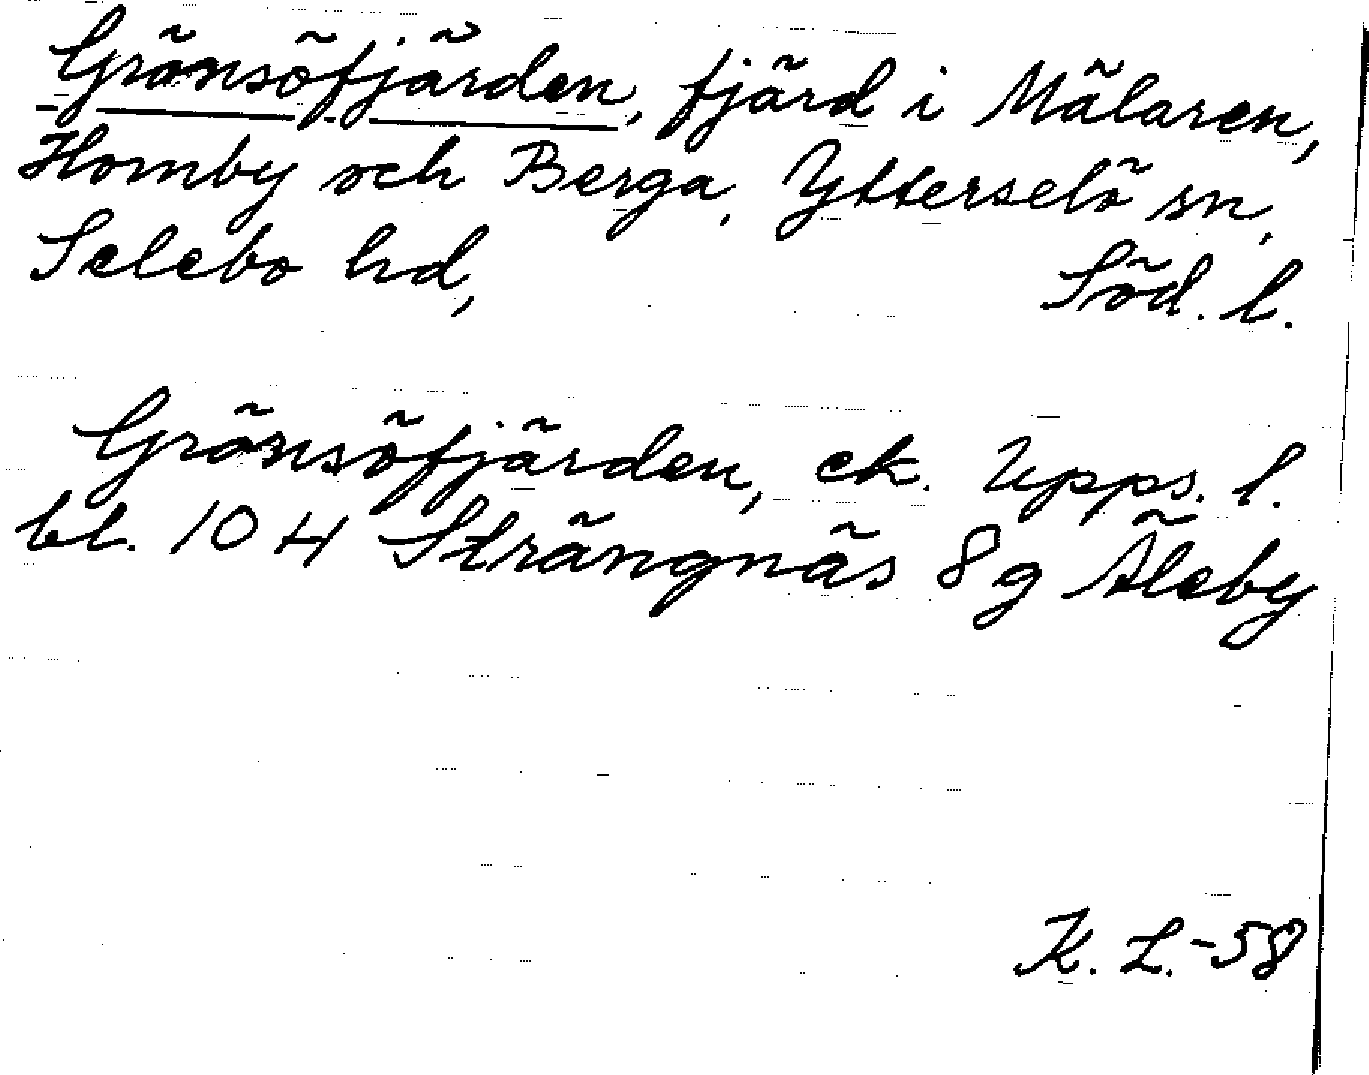 Grönsöfjärden, fjärd i Mälaren,
Homby och Berga, Ytterselö sn,
Selebo hd, Söd. l.
Grönsöfjärden, ek. Upps. l.
bl. 104 Strängnäs 8g Åleby
K. L.-58